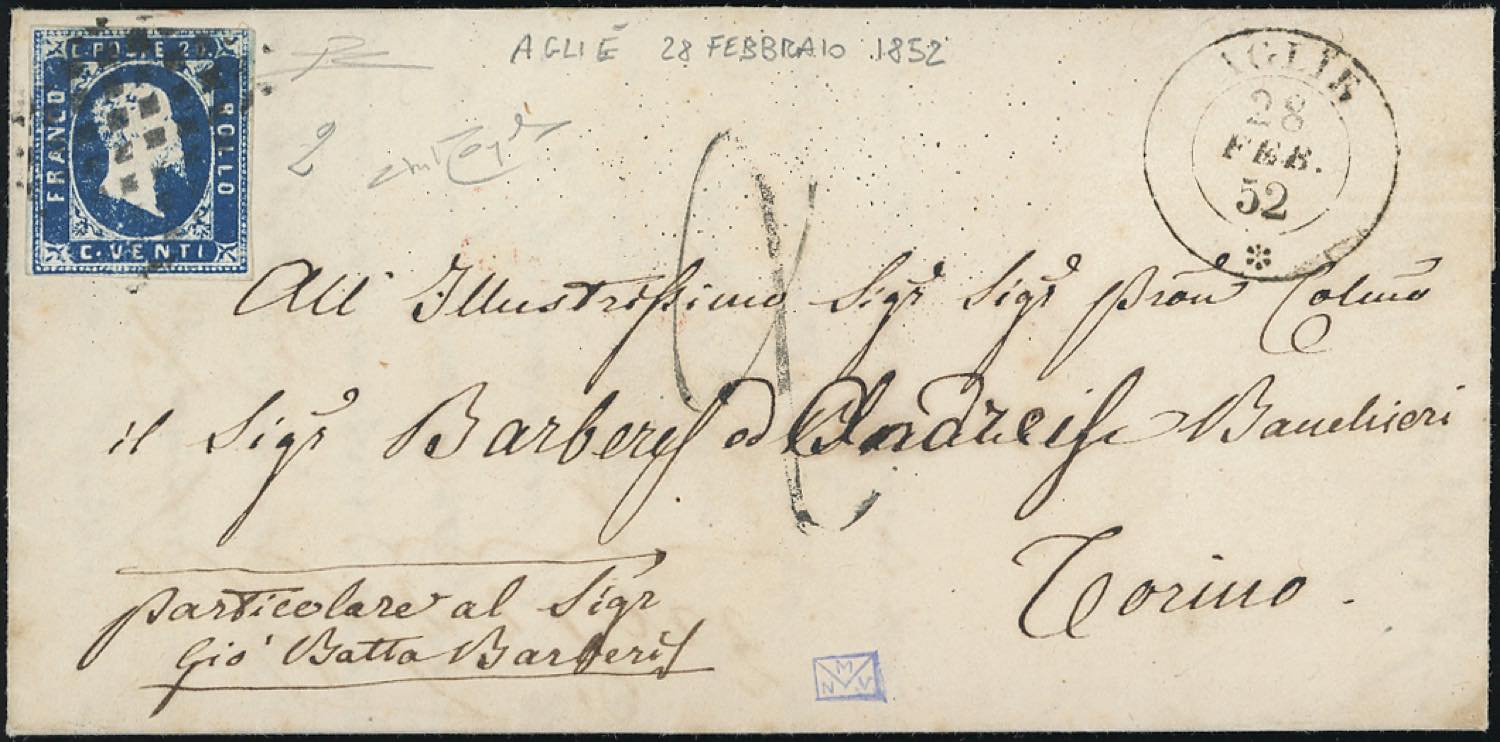 C. POSTE 20
FRANCO
BOLLO
C. VENTI
AGLIÉ 28 FEBBRAIO 1852
AGLIE
28
FEB.
52
2
All' Illustrissimo Sigr Sigr Pron Colmo
il Sigr Barberis ed Andreis Banchieri
Torino.
Particolare al Sigr
Gio' Batta Barberis
M
N V